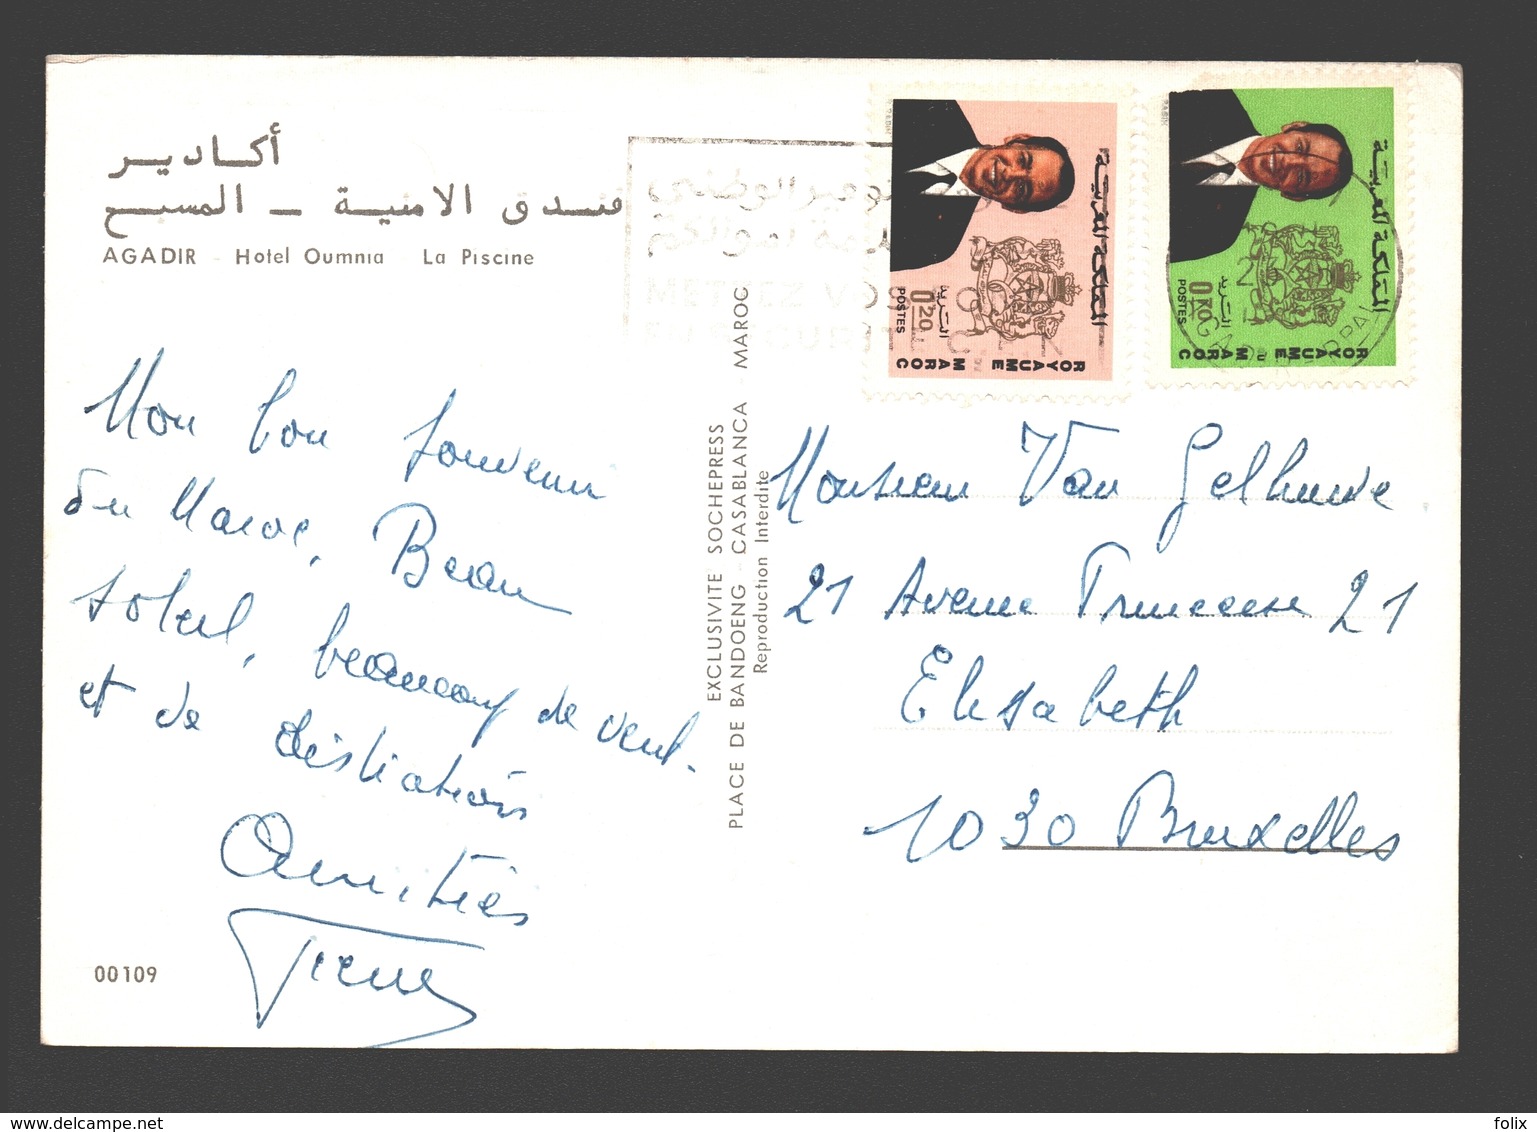 أكادير
فندق الامنية - المسبح
AGADIR - Hotel Oumnia La Piscine
Mon bon souvenir
du Maroc, Beau
soleil, beaucoup de vent.
et de distractions
Amitiés
00109
EXCLUSIVITE SOCHEPRESS
PLACE DE BANDOENG - CASABLANCA - MAROC
Reproduction Interdite
METTEZ VOS
المملكة المغربية
البريد
0,20
POSTES
ROYAUME DU MAROC
المملكة المغربية
البريد
POSTES
ROYAUME DU MAROC
Monsieur Van Gelhuwe
21 Avenue Princesse 21
Elisabeth
1030 Bruxelles
folix
www.delcampe.net